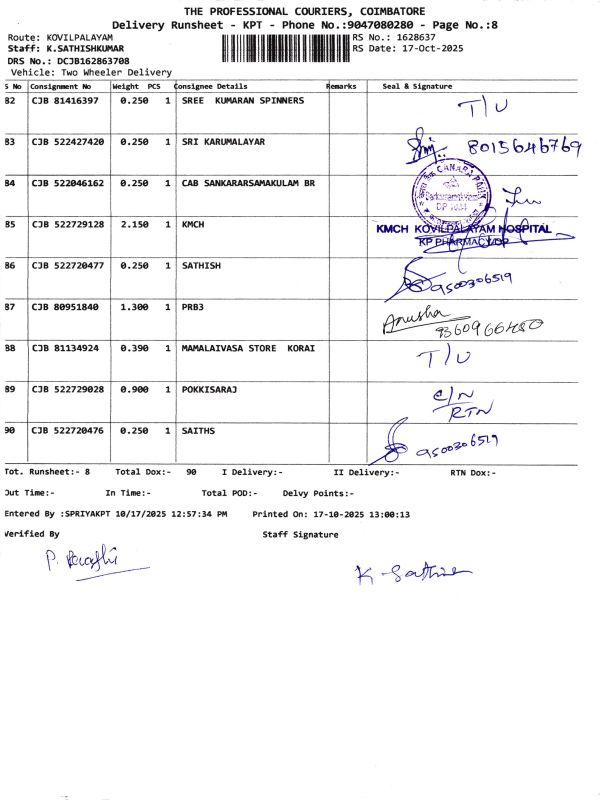 THE PROFESSIONAL COURIERS, COIMBATORE
Delivery Runsheet - KPT - Phone No.:9047080280 - Page No.:8
Route: KOVILPALAYAM RS No.: 1628637
Staff: K.SATHISHKUMAR RS Date: 17-Oct-2025
DRS No.: DCJB162863708
Vehicle: Two Wheeler Delivery
S No Consignment No Weight PCS Consignee Details Remarks Seal & Signature
82 CJB 81416397 0.250 1 SREE KUMARAN SPINNERS T/U
83 CJB 522427420 0.250 1 SRI KARUMALAYAR 8015646769
84 CJB 522046162 0.250 1 CAB SANKARARSAMAKULAM BR
CANARA BANK
85 CJB 522729128 2.150 1 KMCH KMCH KOVILPALAYAM HOSPITAL
KP PHARMACY/DP
86 CJB 522720477 0.250 1 SATHISH 9500306519
87 CJB 80951840 1.300 1 PRB3 Anusha
9360966480
88 CJB 81134924 0.390 1 MAMALAIVASA STORE KORAI T/U
89 CJB 522729028 0.900 1 POKKISARAJ C/N
RTN
90 CJB 522720476 0.250 1 SAITHS 9500306519
Tot. Runsheet:- 8 Total Dox:- 90 I Delivery:- II Delivery:- RTN Dox:-
Out Time:- In Time:- Total POD:- Delvy Points:-
Entered By :SPRIYAKPT 10/17/2025 12:57:34 PM Printed On: 17-10-2025 13:00:13
Verified By Staff Signature